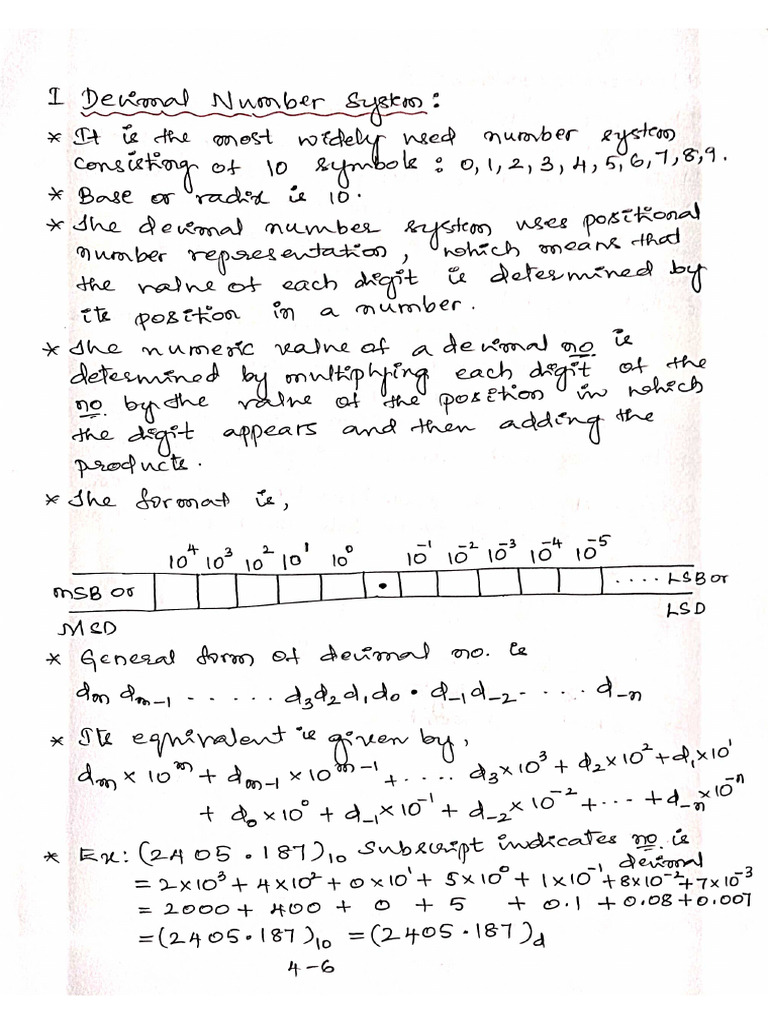 I Decimal Number System:
* It is the most widely used number system
consisting of 10 symbols : 0, 1, 2, 3, 4, 5, 6, 7, 8, 9.
* Base or radix is 10.
* The decimal number system uses positional
number representation, which means that
the value of each digit is determined by
its position in a number.
* The numeric value of a decimal no. is
determined by multiplying each digit of the
no. by the value of the position in which
the digit appears and then adding the
products.
* The format is,
10⁴ 10³ 10² 10¹ 10⁰ 10⁻¹ 10⁻² 10⁻³ 10⁻⁴ 10⁻⁵
MSB or • .... LSB or
MSD LSD
* General form of decimal no. is
dₘ dₘ₋₁ ...... d₃d₂d₁d₀ • d₋₁d₋₂ ..... d₋ₙ
* Its equivalent is given by,
dₘ × 10ᵐ + dₘ₋₁ × 10ᵐ⁻¹ + .... d₃×10³ + d₂×10² + d₁×10¹
+ d₀×10⁰ + d₋₁×10⁻¹ + d₋₂×10⁻² + ... + d₋ₙ×10⁻ⁿ
* Ex: (2405.187)₁₀ Subscript indicates no. is
decimal
= 2×10³ + 4×10² + 0×10¹ + 5×10⁰ + 1×10⁻¹ + 8×10⁻² + 7×10⁻³
= 2000 + 400 + 0 + 5 + 0.1 + 0.08 + 0.007
= (2405.187)₁₀ = (2405.187)d
4-6